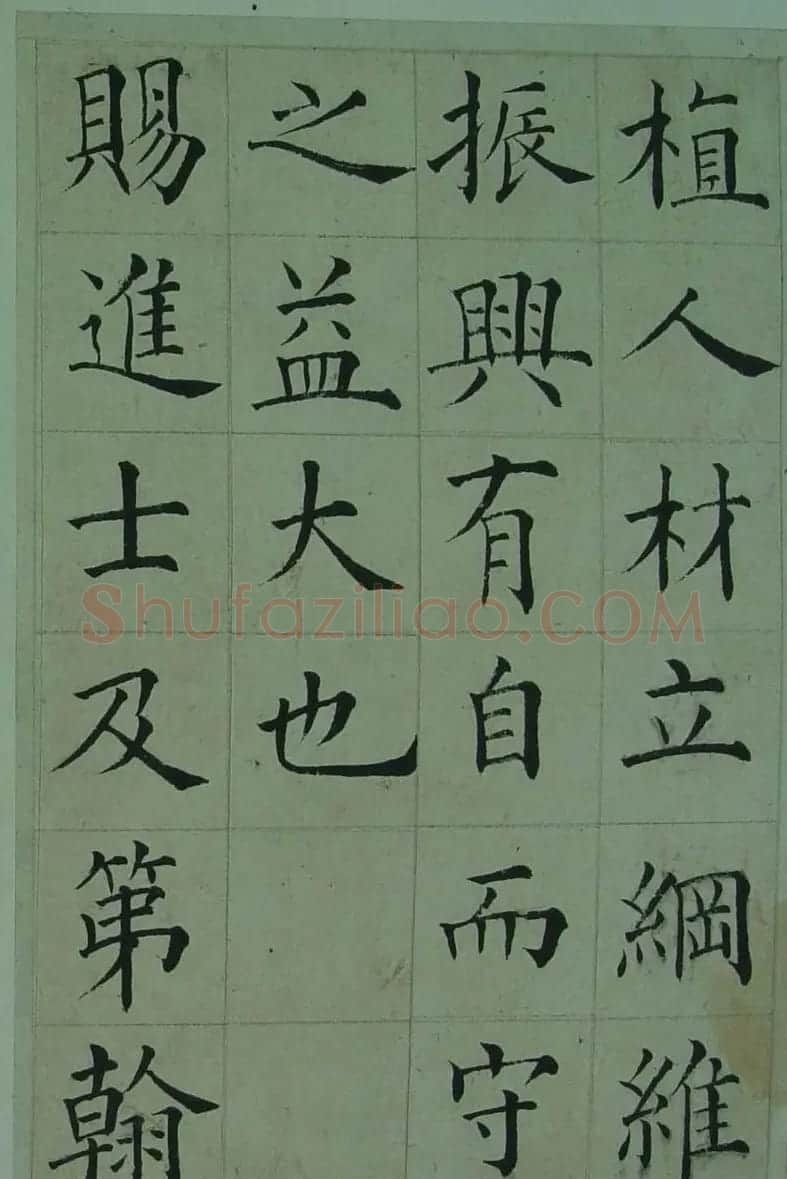 植人材立綱維
振興有自而守
之益大也
賜進士及第翰
Shufaziliao.COM